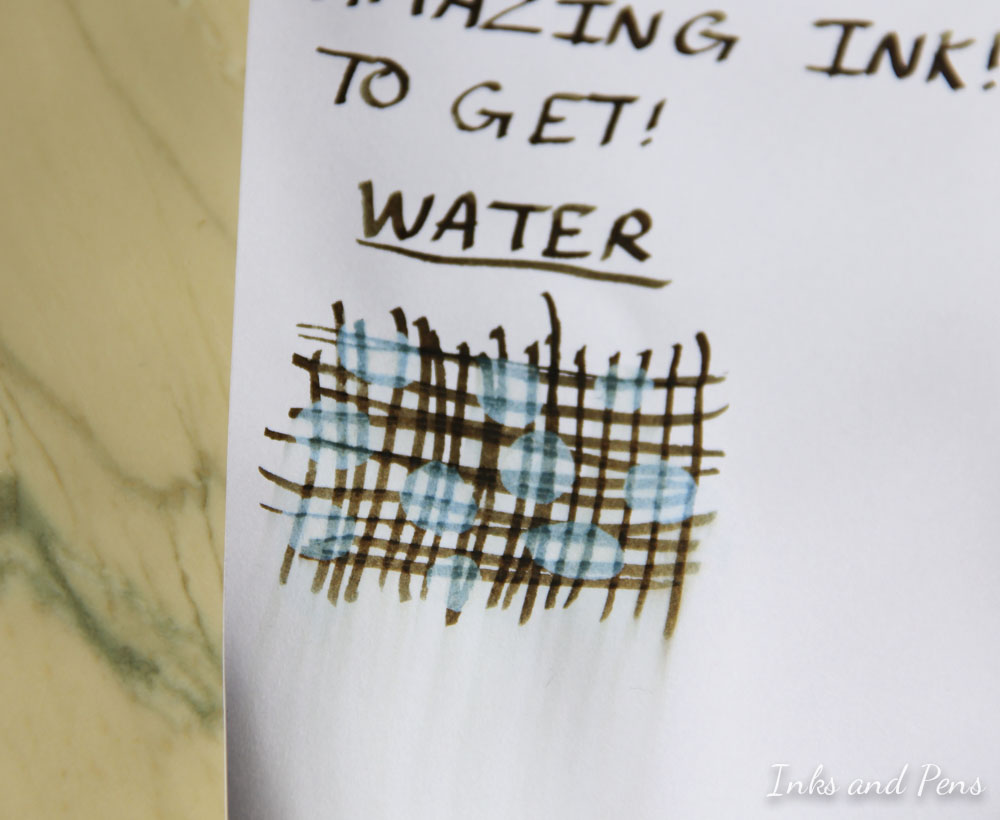 AMAZING INK!
TO GET!
WATER
Inks and Pens